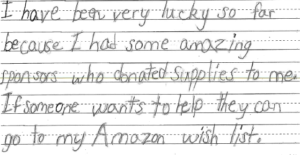 I have been very lucky so far
because I had some amazing
sponsors who donated supplies to me.
If someone wants to help they can
go to my Amazon wish list.